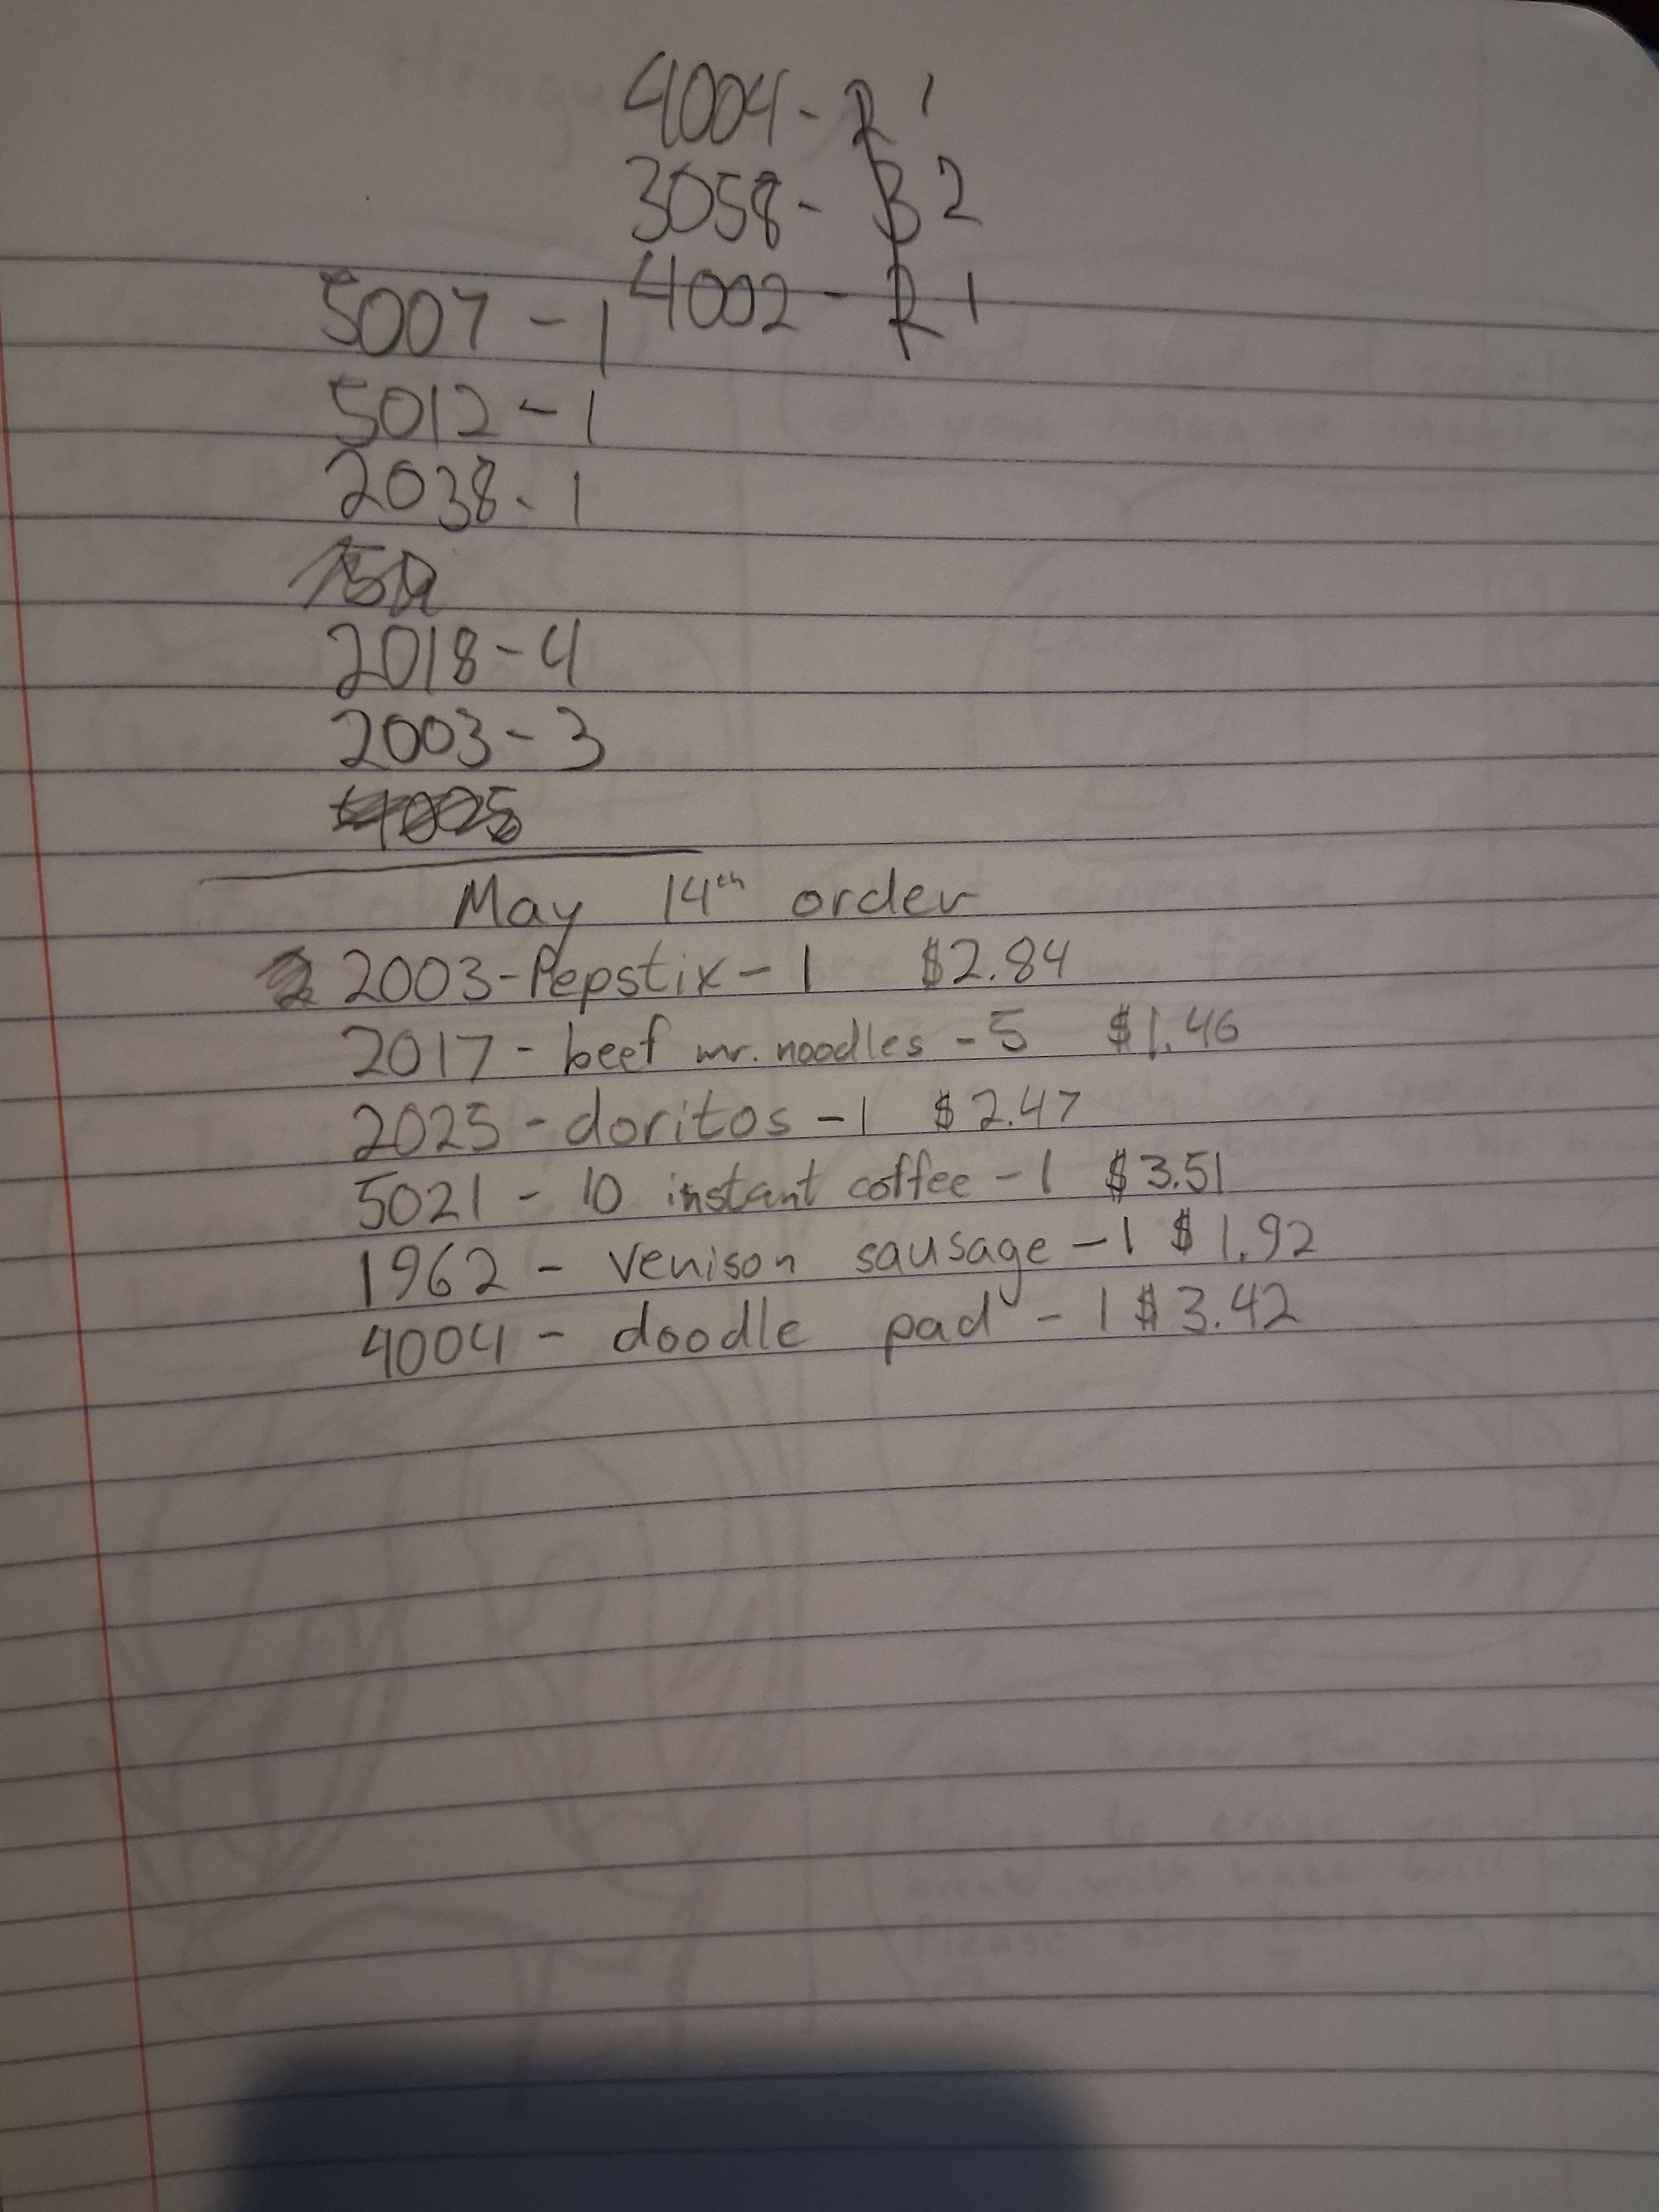 4004 - R 1
3058 - B 2
4002 - R 1
5007 - 1
5012 - 1
2038 - 1
2018 - 4
2003 - 3
4005
May 14th order
2003 - Pepstix - 1 $2.84
2017 - beef mr. noodles - 5 $1.46
2025 - doritos - 1 $2.47
5021 - 10 instant coffee - 1 $3.51
1962 - venison sausage - 1 $1.92
4004 - doodle pad - 1 $3.42